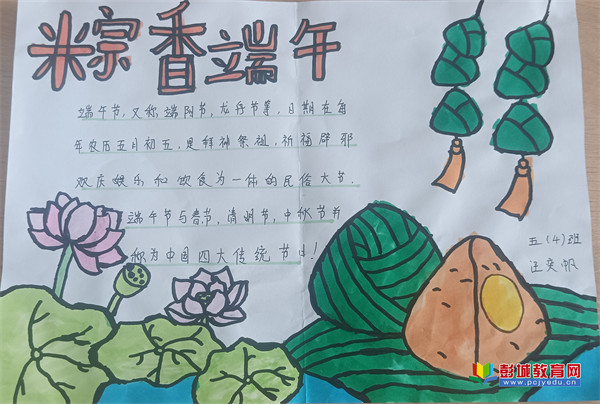 粽香端午
端午节,又称端阳节,龙舟节等,日期在每
年农历五月初五,是拜神祭祖、祈福辟邪
欢庆娱乐和饮食为一体的民俗大节.
端午节与春节、清明节,中秋节并
称为中国四大传统节日!
五(4)班
奕帆
彭城教育网
www.pcjyedu.cn